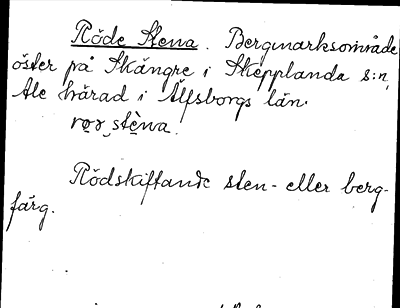 Röde Stena. Bergmarksområde
öster på Skångre i Skepplanda s:n,
Ale härad i Älfsborgs län.
Rödskiftande sten- eller berg-
färg.